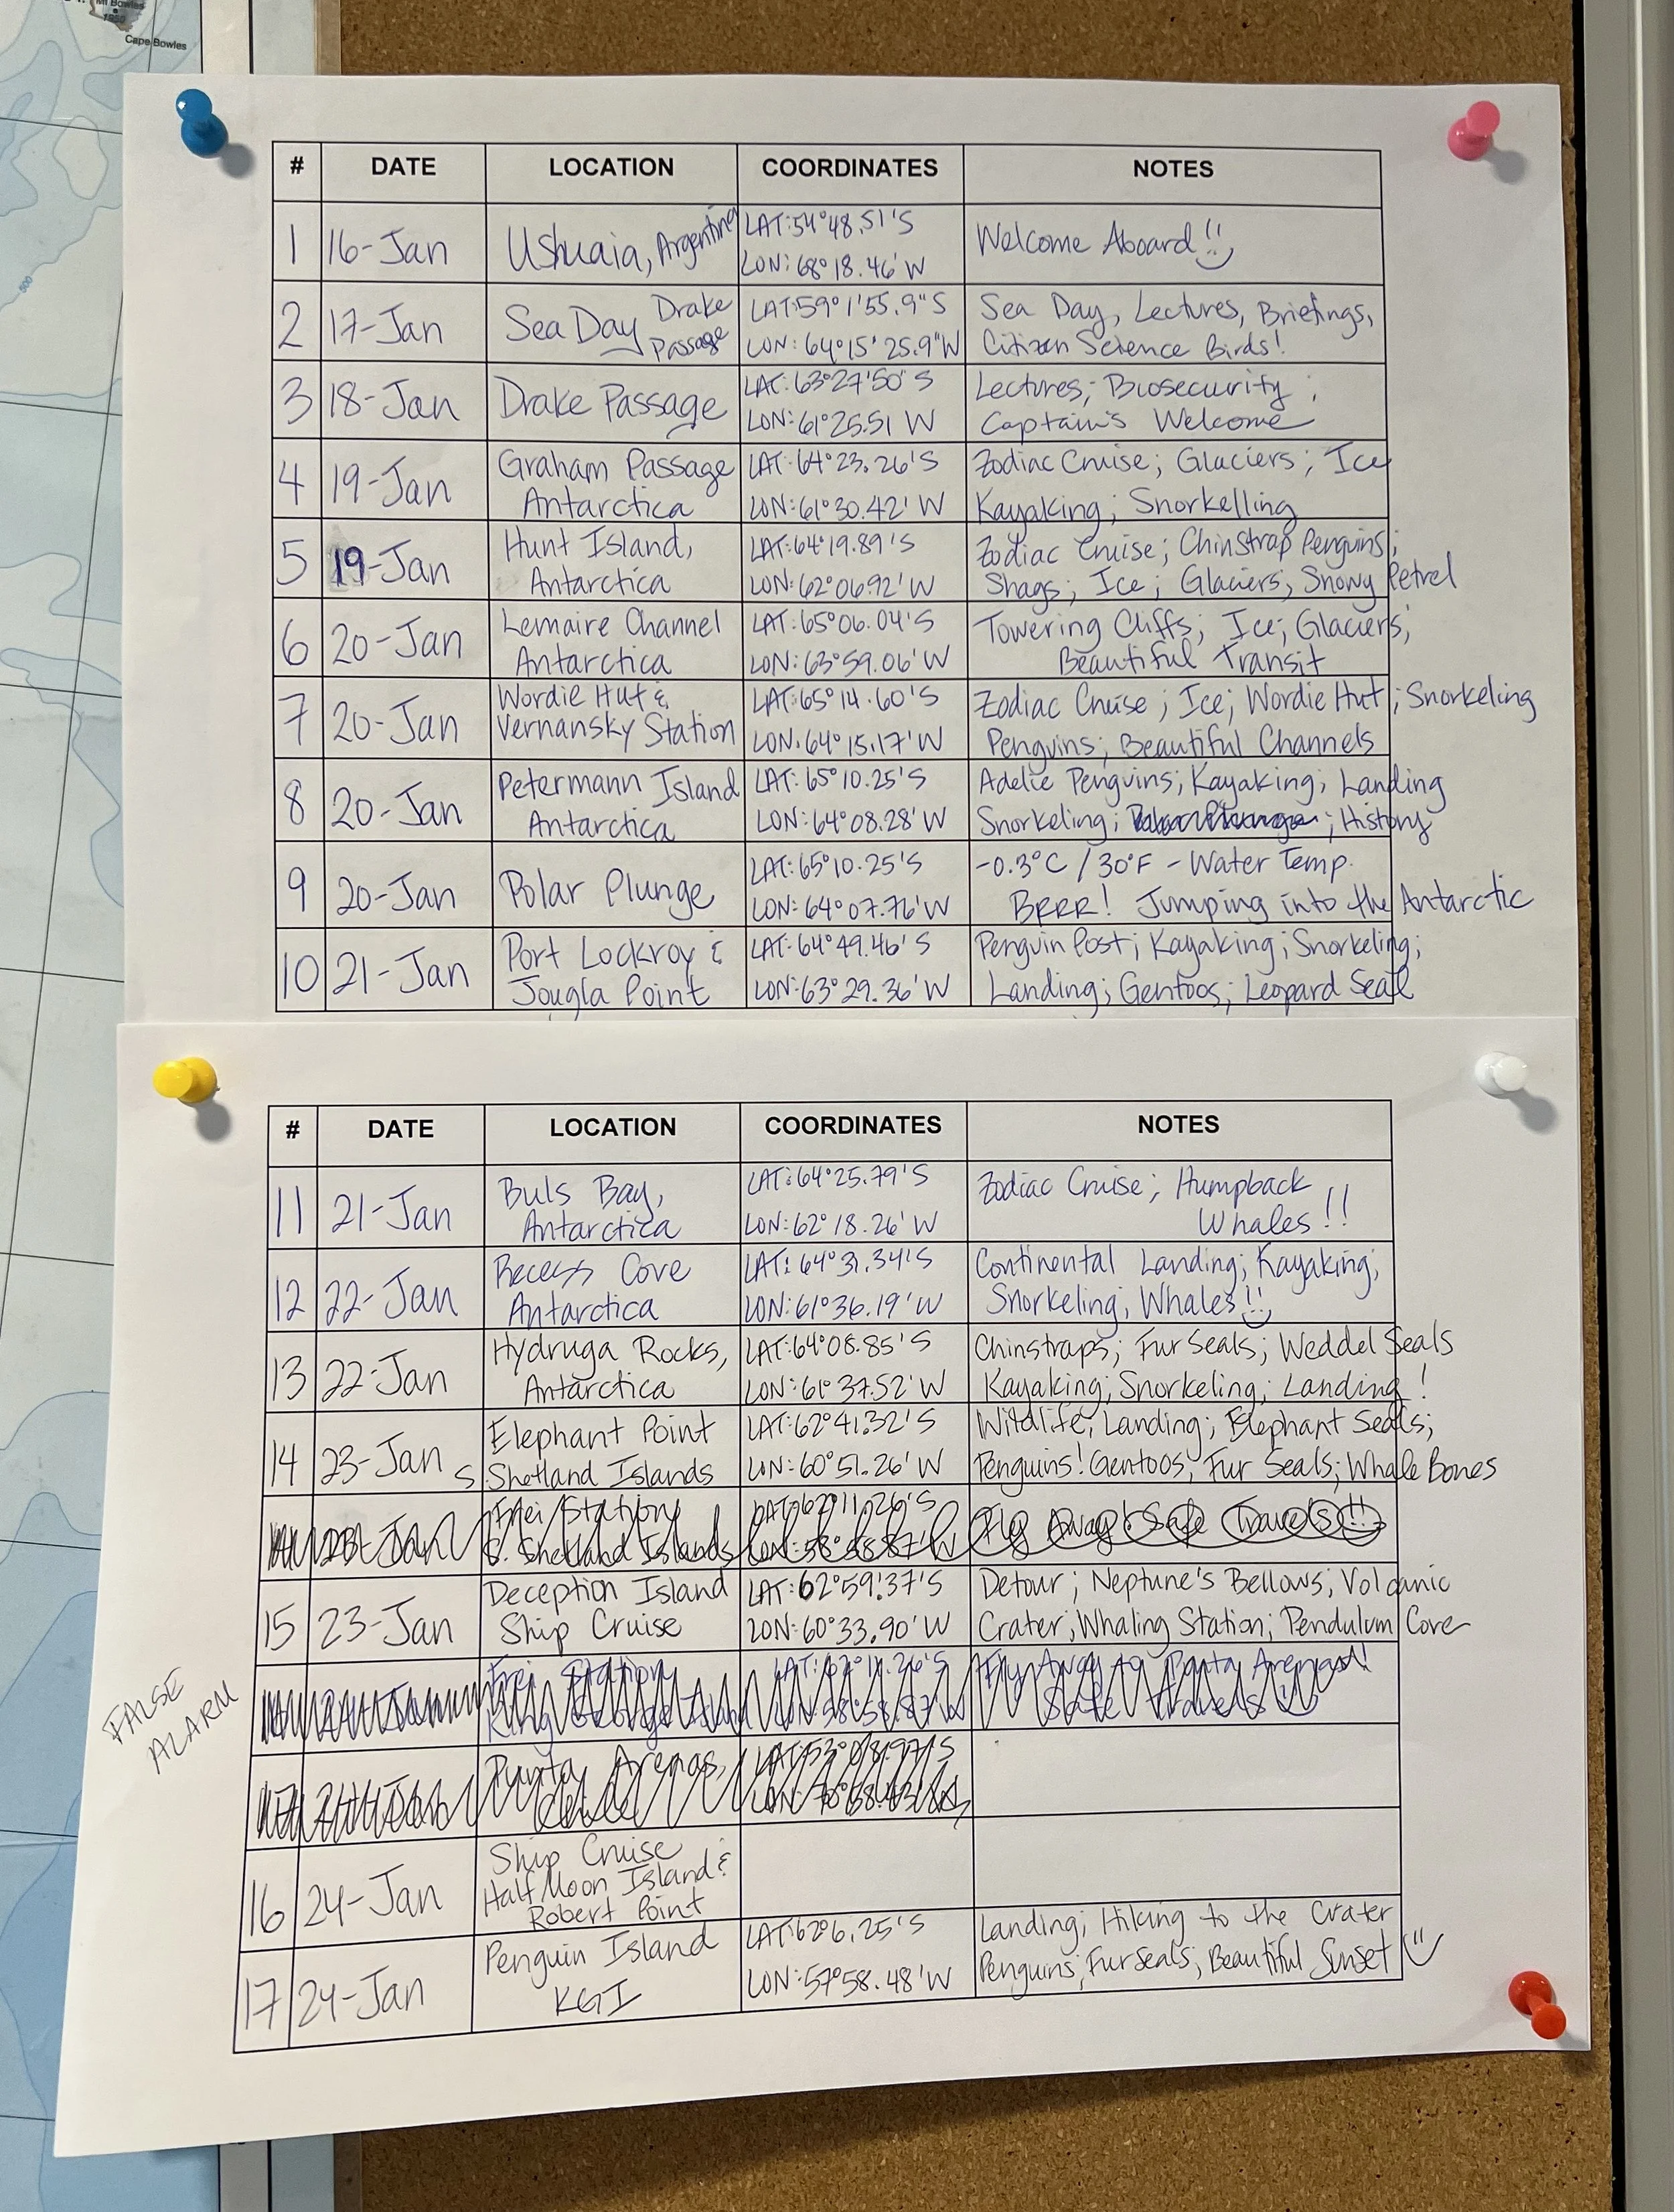 Mt Bowles
1859
Cape Bowles
500
# DATE LOCATION COORDINATES NOTES
1 16-Jan Ushuaia, Argentina LAT:54°48.51'S Welcome Aboard!!
LON: 68°18.46'W
2 17-Jan Sea Day Drake Passage LAT:59°1'55.9"S Sea Day, Lectures, Briefings,
LON: 64°15'25.9"W Citizen Science Birds!
3 18-Jan Drake Passage LAT: 63°27'50"S Lectures; Biosecurity;
LON: 61°25.51 W Captain's Welcome
4 19-Jan Graham Passage LAT: 64°23.26'S Zodiac Cruise; Glaciers; Ice
Antarctica LON: 61°30.42' W Kayaking; Snorkelling
5 19-Jan Hunt Island, LAT: 64°19.89'S Zodiac Cruise; Chinstrap Penguins;
Antarctica LON: 62°06.92'W Shags; Ice; Glaciers; Snowy Petrel
6 20-Jan Lemaire Channel LAT: 65°06.04'S Towering Cliffs; Ice; Glaciers;
Antarctica LON: 63°59.06'W Beautiful Transit
7 20-Jan Wordie Hut & LAT: 65°14.60'S Zodiac Cruise; Ice; Wordie Hut; Snorkeling
Vernansky Station LON: 64°15.17'W Penguins; Beautiful Channels
8 20-Jan Petermann Island LAT: 65°10.25'S Adelie Penguins; Kayaking; Landing
Antarctica LON: 64°08.28'W Snorkeling; Polar Plunge; History
9 20-Jan Polar Plunge LAT: 65°10.25'S -0.3°C / 30°F - Water Temp.
LON: 64°07.76'W BRRR! Jumping into the Antarctic
10 21-Jan Port Lockroy & LAT: 64°49.46'S Penguin Post; Kayaking; Snorkeling;
Jougla Point LON: 63°29.36'W Landing; Gentoos; Leopard Seal
# DATE LOCATION COORDINATES NOTES
11 21-Jan Buls Bay, LAT: 64°25.79'S Zodiac Cruise; Humpback
Antarctica LON: 62°18.26'W Whales!!
12 22-Jan Recess Cove LAT: 64°31.34'S Continental Landing; Kayaking;
Antarctica LON: 61°36.19'W Snorkeling; Whales!!
13 22-Jan Hydruga Rocks, LAT: 64°08.85'S Chinstraps; Fur Seals; Weddel Seals
Antarctica LON: 61°37.52'W Kayaking; Snorkeling; Landing!
14 23-Jan Elephant Point LAT: 62°41.32'S Wildlife; Landing; Elephant Seals;
S. Shetland Islands LON: 60°51.26'W Penguins! Gentoos; Fur Seals; Whale Bones
Frei Station LAT: 62°11.26'S Fly Away! Safe Travels!!
S. Shetland Islands
15 23-Jan Deception Island LAT: 62°59.37'S Detour; Neptune's Bellows; Volcanic
Ship Cruise LON: 60°33.90'W Crater; Whaling Station; Pendulum Cove
FALSE
ALARM
Frei Station LAT: 62°11.26'S Fly Away to Punta Arenas!
King George Island Safe Travels
Punta Arenas,
Chile
16 24-Jan Ship Cruise
Half Moon Island &
Robert Point
17 24-Jan Penguin Island LAT: 62°6.25'S Landing; Hiking to the Crater
KGI LON: 57°58.48'W Penguins; Fur Seals; Beautiful Sunset